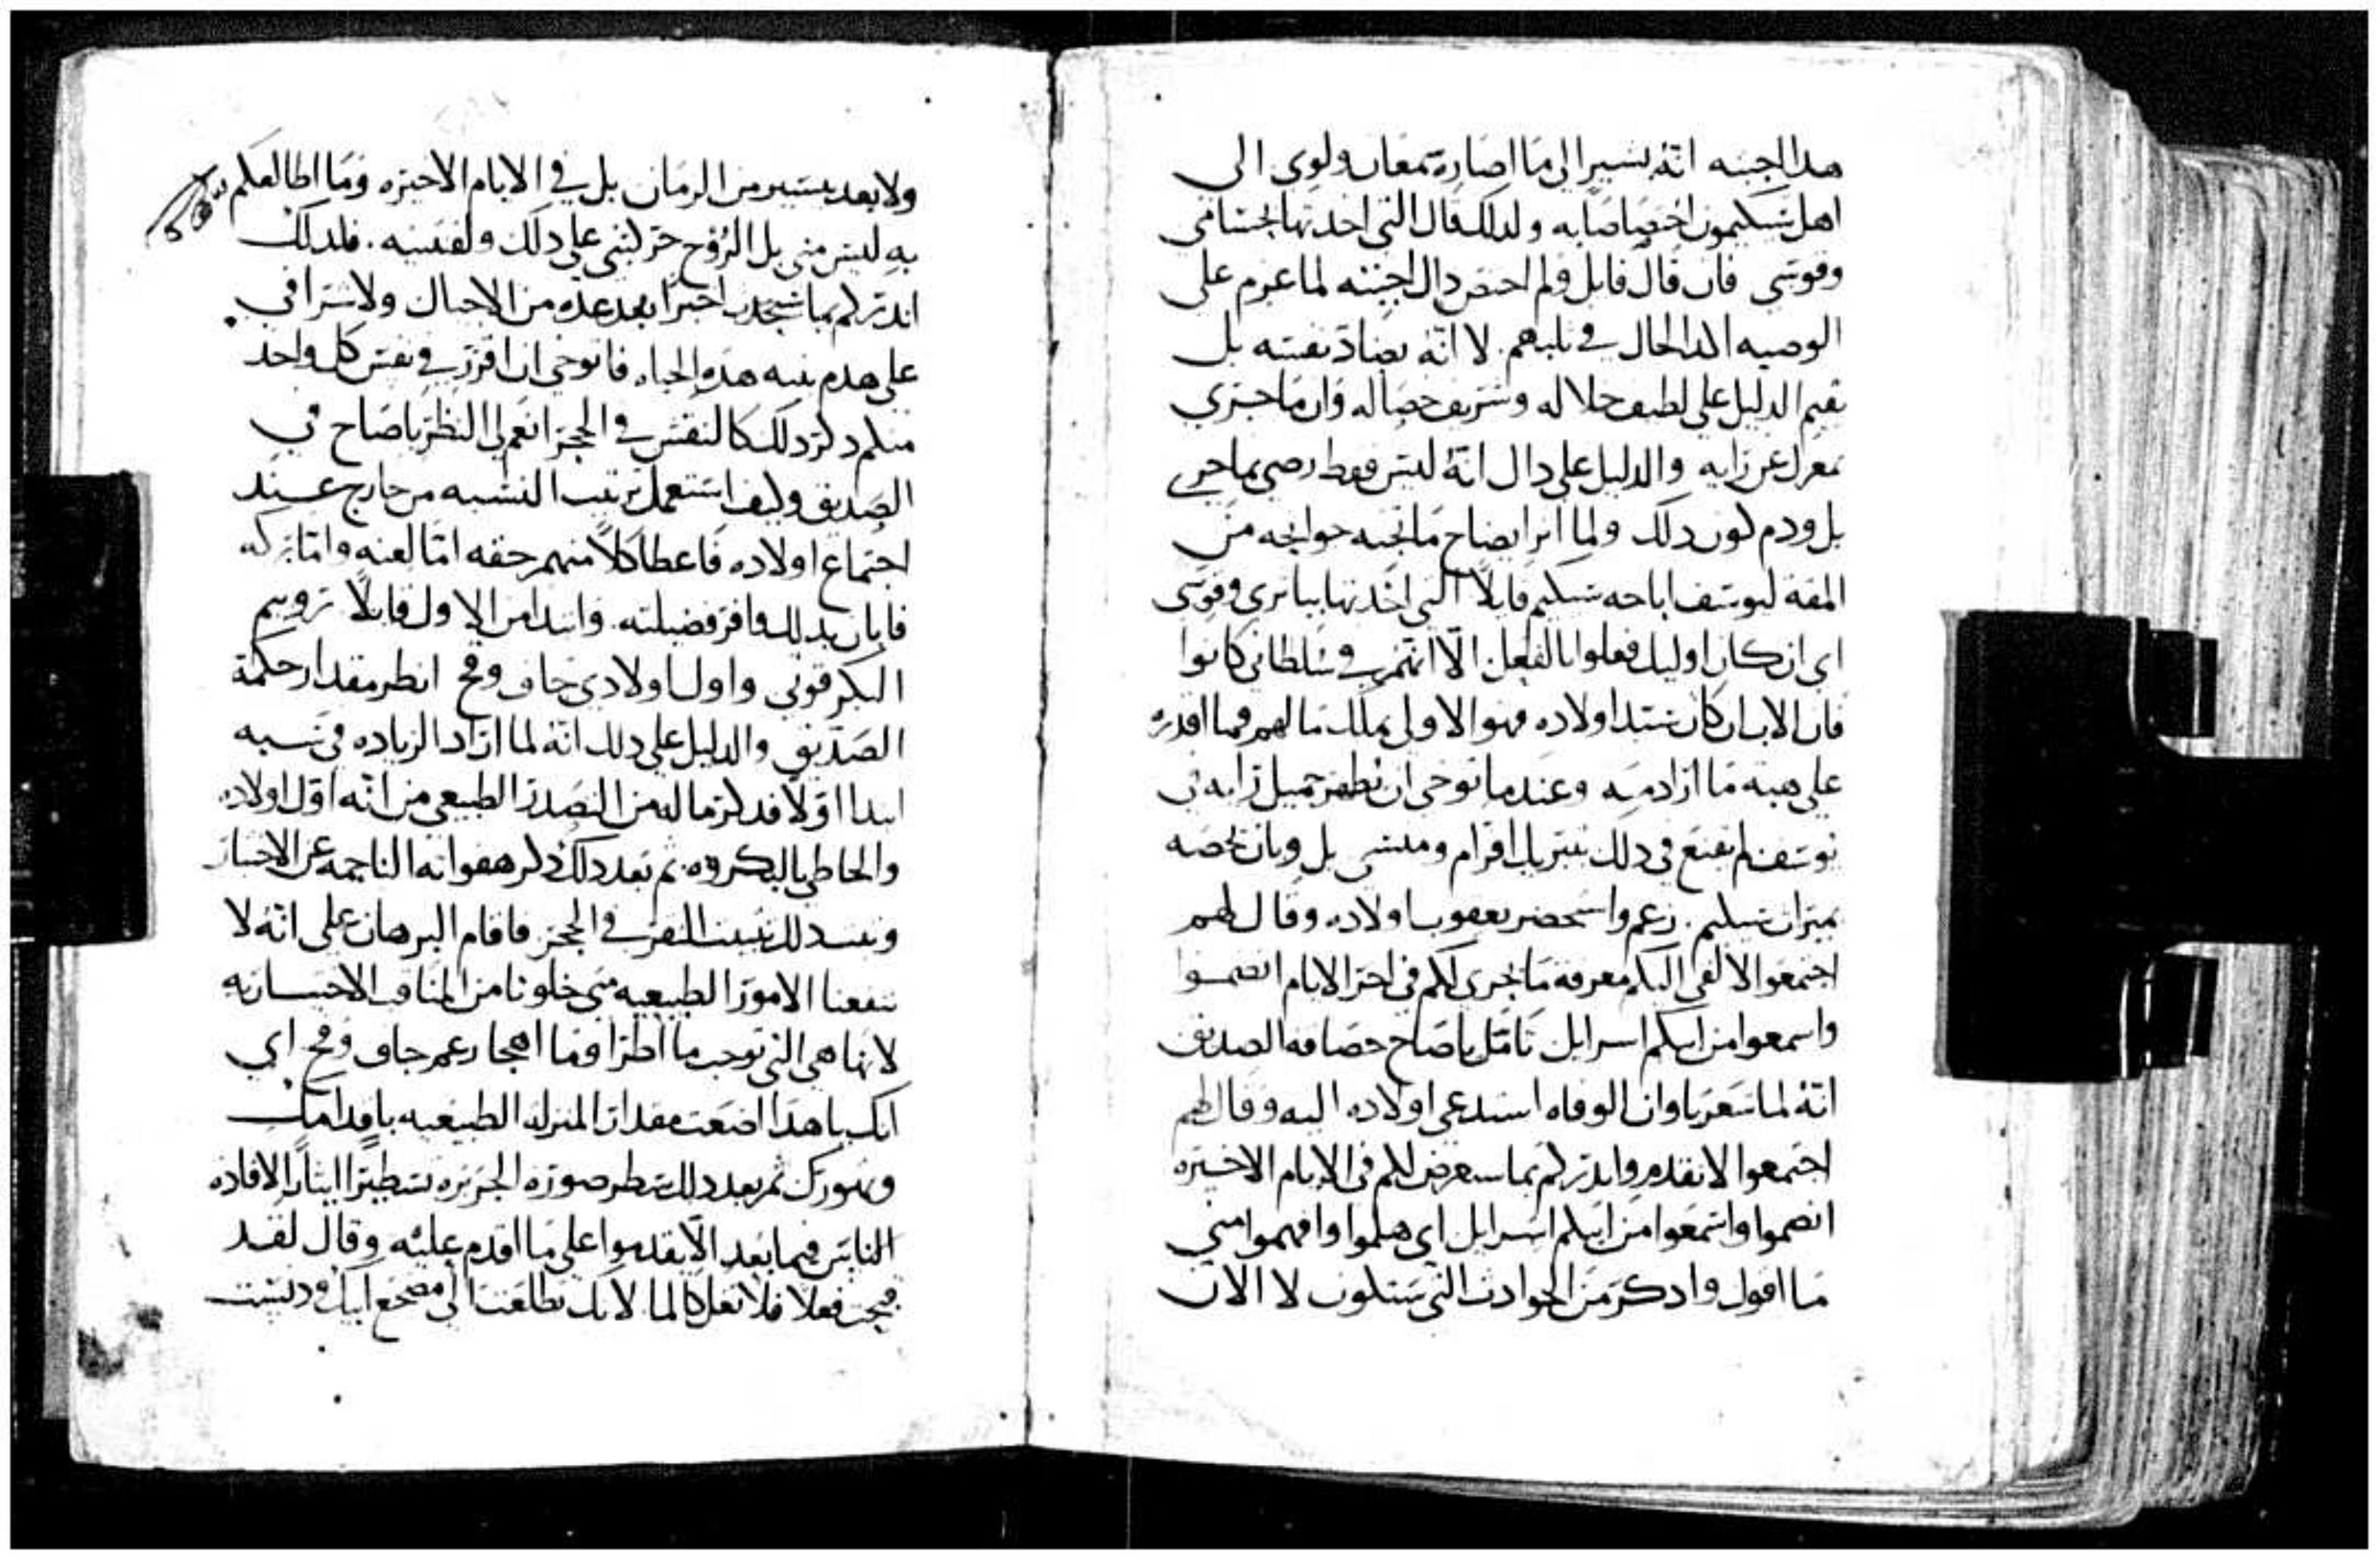 هذا اجبته انه يشير الى ما اصاره شمعان ولوى الى
اهل شكيمون اختصاصا به ولذلك قال التي اخذتها بحسامي
وقوسي فان قال قايل ولم احتض دال اجبته لما عزم على
الوصيه الذا لحال في ثلبهم لا انه يضاد نفسه بل
يقيم الدليل على لطيف خلاله وشريف خصاله وان ما جرى
بمعزل عن رايه والدليل على دال انه ليس فقط رضى بما جرى
بل وذم لون ذلك ولما اثر ايضاح ما تجنه جوانحه من
المقه ليوسف اباحه شكيم قايلا التي اخذتها بباتري وقوسي
اى ان كان اوليك فعلوا بالفعل الا انهم في سلطاني كانوا
فان الاب ان كان سيد اولاده فهو الاولى بملك ما لهم فما اقدره
على هبته ما اراد منه وعندما توخى ان يظهر جميل رايه في
يوسف لم يقنع في ذلك بتبريك افرام ومنسى بل وبان خصه
بميراث شكيم زعم واستحضر يعقوب اولاده وقال لهم
اجتمعوا لالقى اليكم معرفة ما يجرى لكم في اخر الايام انضموا
واسمعوا من ابيكم اسرايل تامل ياصاح حصافه الصديق
انه لما شعر باوان الوفاه استدعى اولاده اليه وقال لهم
اجتمعوا لاتقدم وانذركم بما سيعرض لكم في الايام الاخيره
انضموا واسمعوا من ابيكم اسرايل اى هلموا وافهموا مني
ما اقول واذكر من الحوادث التي ستكون لا الان
ولا بعد يسير من الزمان بل في الايام الاخيره وما اطالعكم
به ليس مني بل الروح حركني على ذلك ولقننيه فلذلك
انذركم بما سيحدث اخيرا بعد عده من الاجيال ولاشرافي
على هدم بنيه هذه الحياه فاتوخى ان اقرر في نفس كل واحد
منكم ذكر ذلك كالنقش في الحجر انعم لي النظر ياصاح في
الصديق وكيف استعمل ترتيب النسبه من خارج عند
اجتماع اولاده فاعطا كلا منهم حقه اما لعنه واما بركه
فابان بذلك وافر فضيلته وابتدا من الاول قايلا روبيم
البكر قوتي واول اولادي جاف وقح انظر مقدار حكمة
الصديق والدليل على ذلك انه لما اراد الزياده في سبه
ابدا اولا فذكر ما له من التصدر الطبيعي من انه اول اولاده
والحاظي بالبكروه ثم بعد ذلك ذكر هفواته الناجمه عن الاختيار
وتثبت النقر في الحجر فاقام البرهان على انه لا
تنفعنا الامور الطبيعيه متى خلونا من المناقب الاختياريه
لانها هي التي توجب ما اطرا وما اهجا زعم جاف وقح اي
انك يا هذا اضعت مقدار المنزله الطبيعيه باقدامك
وتهورك ثم بعد ذلك سطر صوره الجريره تسطيرا الينا لافاده
الناس فيما بعد الا يقدموا على ما اقدم عليه وقال لقد
قبحت فعلا فلا تغل كالما لانك تطلعت الى مضجع ابيك ودنست